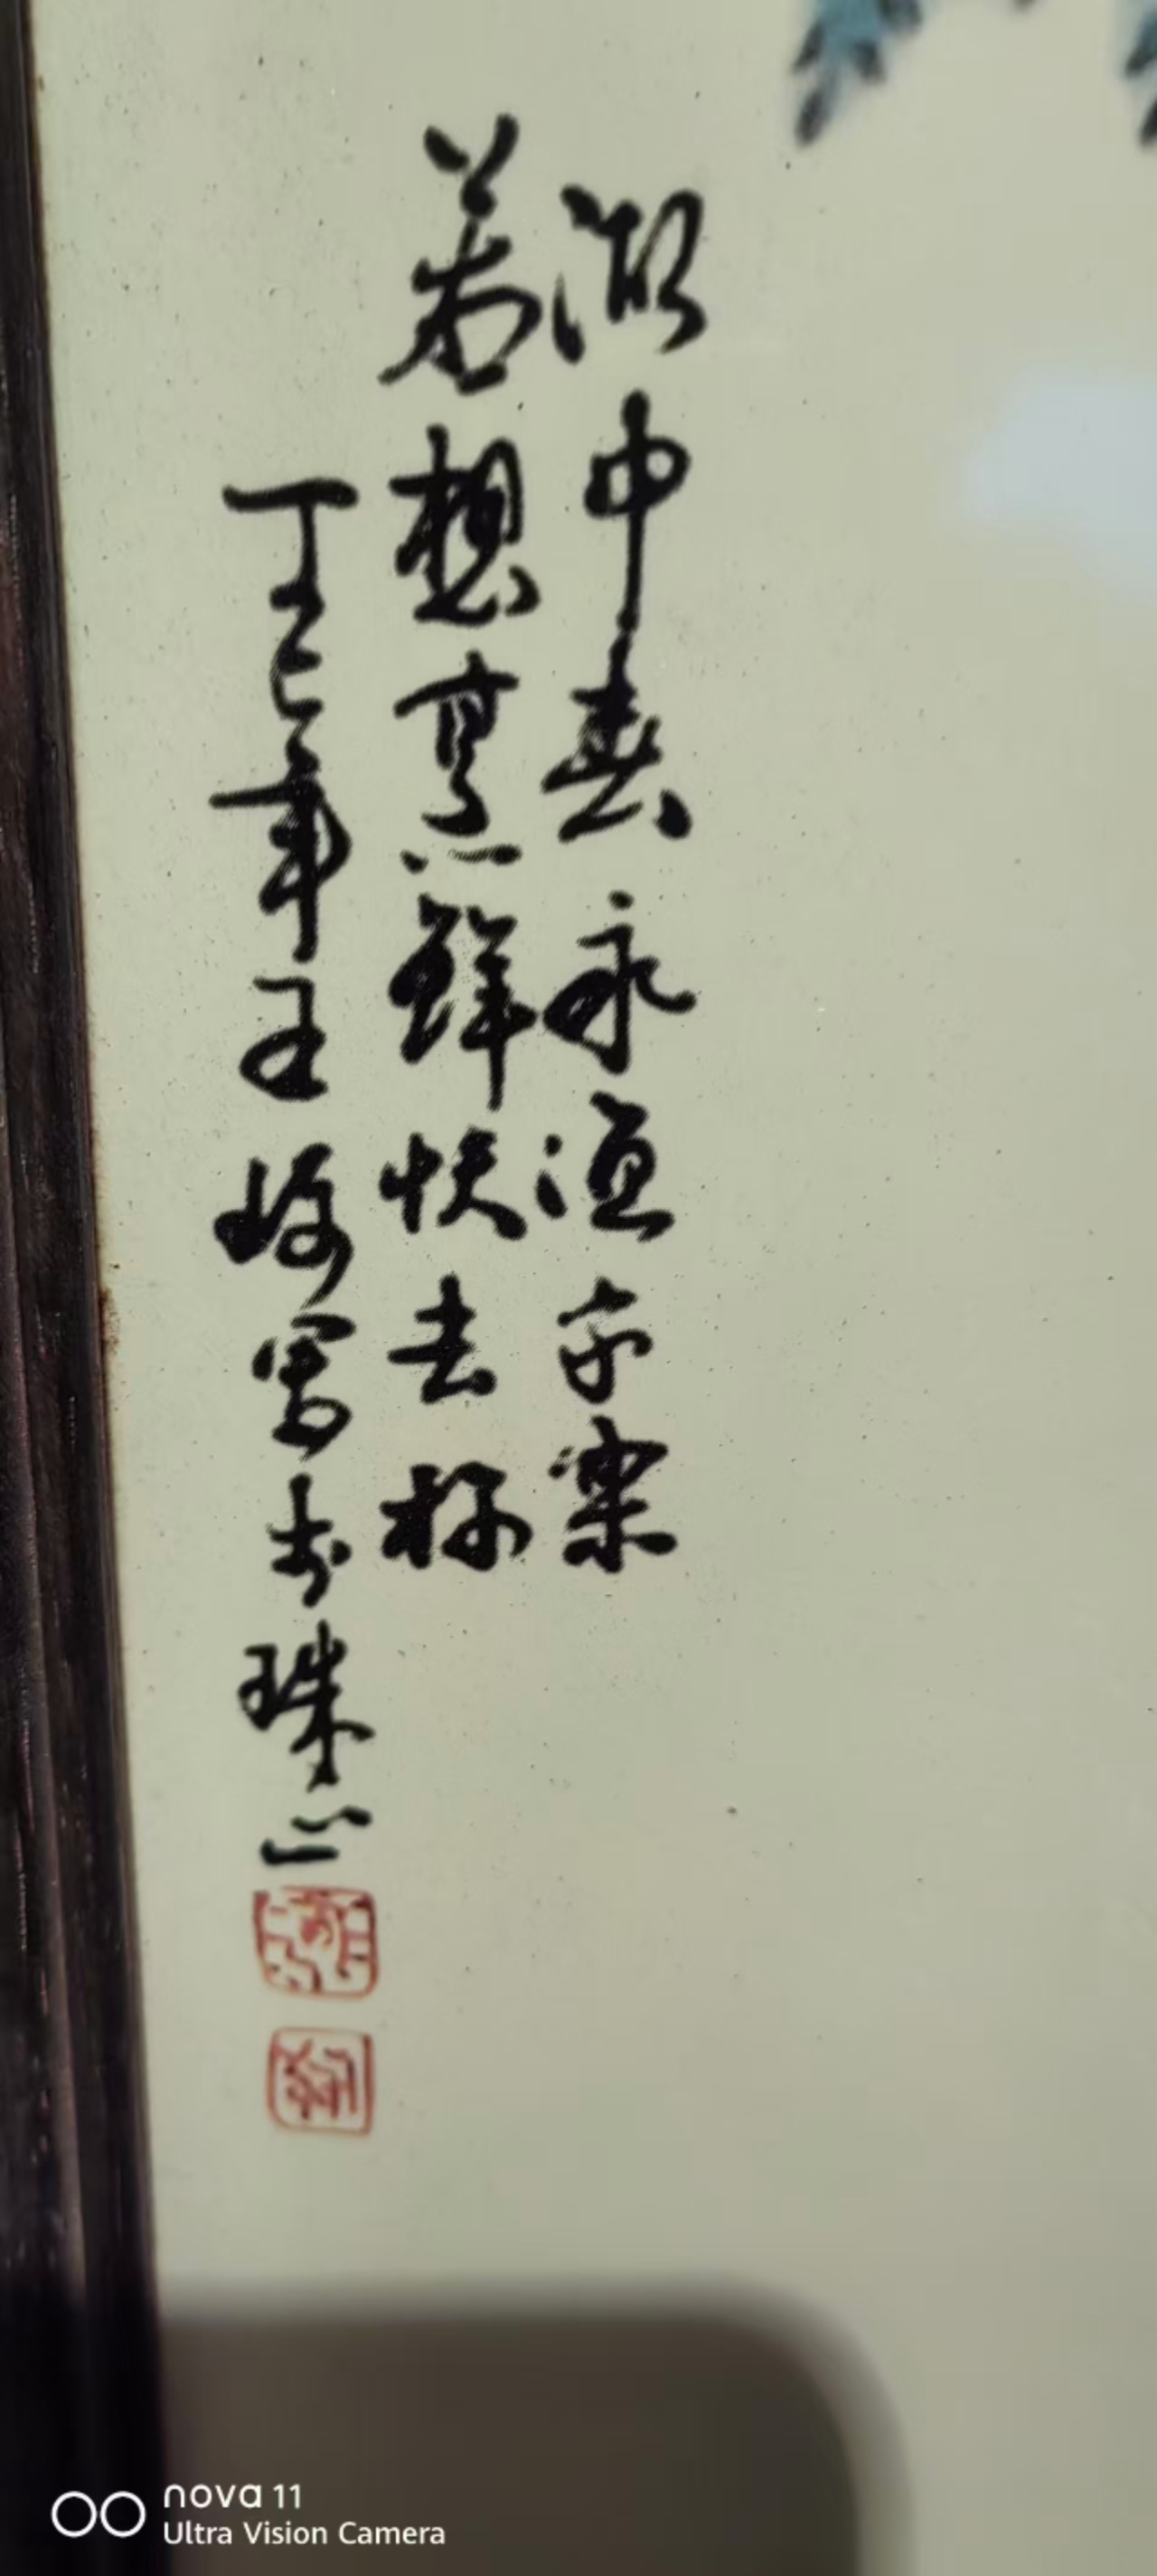 湖中春永渔家乐
若想烹鲜快去捞
丁巳年王琦写于珠山
nova 11
Ultra Vision Camera